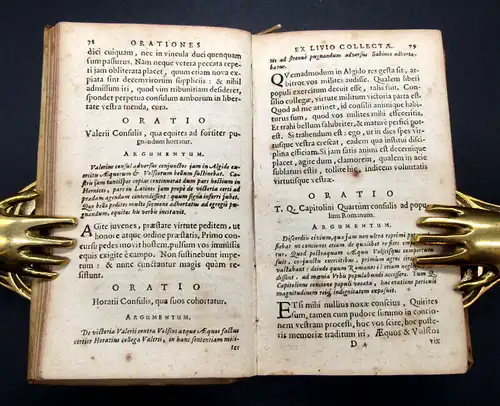 78 ORATIONES
dici cuiquam, nec in vincula duci quenquam
sum passurus. Nam neque vetera peccata repeti
jam obliterata placet, quum etiam nova expiata
sint decemvirorum suppliciis: & nihil
admissum iri, quod vim tribunitiam desideret,
spondet perpetua consulum amborum in libertate
vestra tuenda, cura.
ORATIO
Valerii Consulis, qua equites ad fortiter pugnandum
hortatur.
ARGUMENTUM.
Valerius consul adversus conjunctos jam in Algido exercitu
Æquorum & Volscorum bellum sustinebat.
jam tumultus copias continuerat dum pars hostium in
Hernicos, pars in Latinos jam prope de victoria certi ad
prædam agendam contendissent: quum signa inferri jubet.
equites his verbis incitavit.
Agite juvenes, præstate virtute peditem, ut
honore atque ordine præstatis. Primo concursu
pedes movit hostem, pulsum vos immissis
equis exigite è campo. Non sustinebunt impetum:
& nunc cunctantur magis quàm resistunt.
ORATIO
Horatii Consulis, qua suos cohortatur.
ARGUMENTUM.
De victoria Valerii contra Volscos atque Æquos factus
certior Horatius collega Valerii, in hanc sententiam mili-
tes
EX LIVIO COLLECTÆ. 79
tes ad strenuè pugnandum adversus Sabinos adhortabatur.
QVemadmodum in Algido res gesta sit, arbitror
vos milites audisse. Qualem liberi
populi exercitum decuit esse, talis fuit. Consilio
collegæ, virtute militum victoria parta est.
Quod ad me attinet, id consilii animique habiturus
sum, quod vos mihi feceritis.
Et trahi bellum salubriter, & maturè perfici potest.
Si trahendum est: ego, ut in dies spes virtusque
vestra crescat, eadem qua institui disciplina
efficiam. Si jam satis animi est decernique
placet, agite dum, clamorem, qualem in acie
sublaturi estis, tollite hîc, indicem voluntatis
virtutisque vestræ.
ORATIO
T. Q. Capitolini Quartùm consulis ad populum
Romanum.
ARGUMENTUM.
Capitolinus concione populi vocata, hac oratione periculi
magnitudinem indignitatem exposuit.
ETsi mihi nullius noxæ conscius, Quirites
sum, tamen cum pudore summo in concionem
vestram processi, hoc vos scire, hoc posteris
memoriæ traditum iri, Æquos & Volscos
D 4 vix